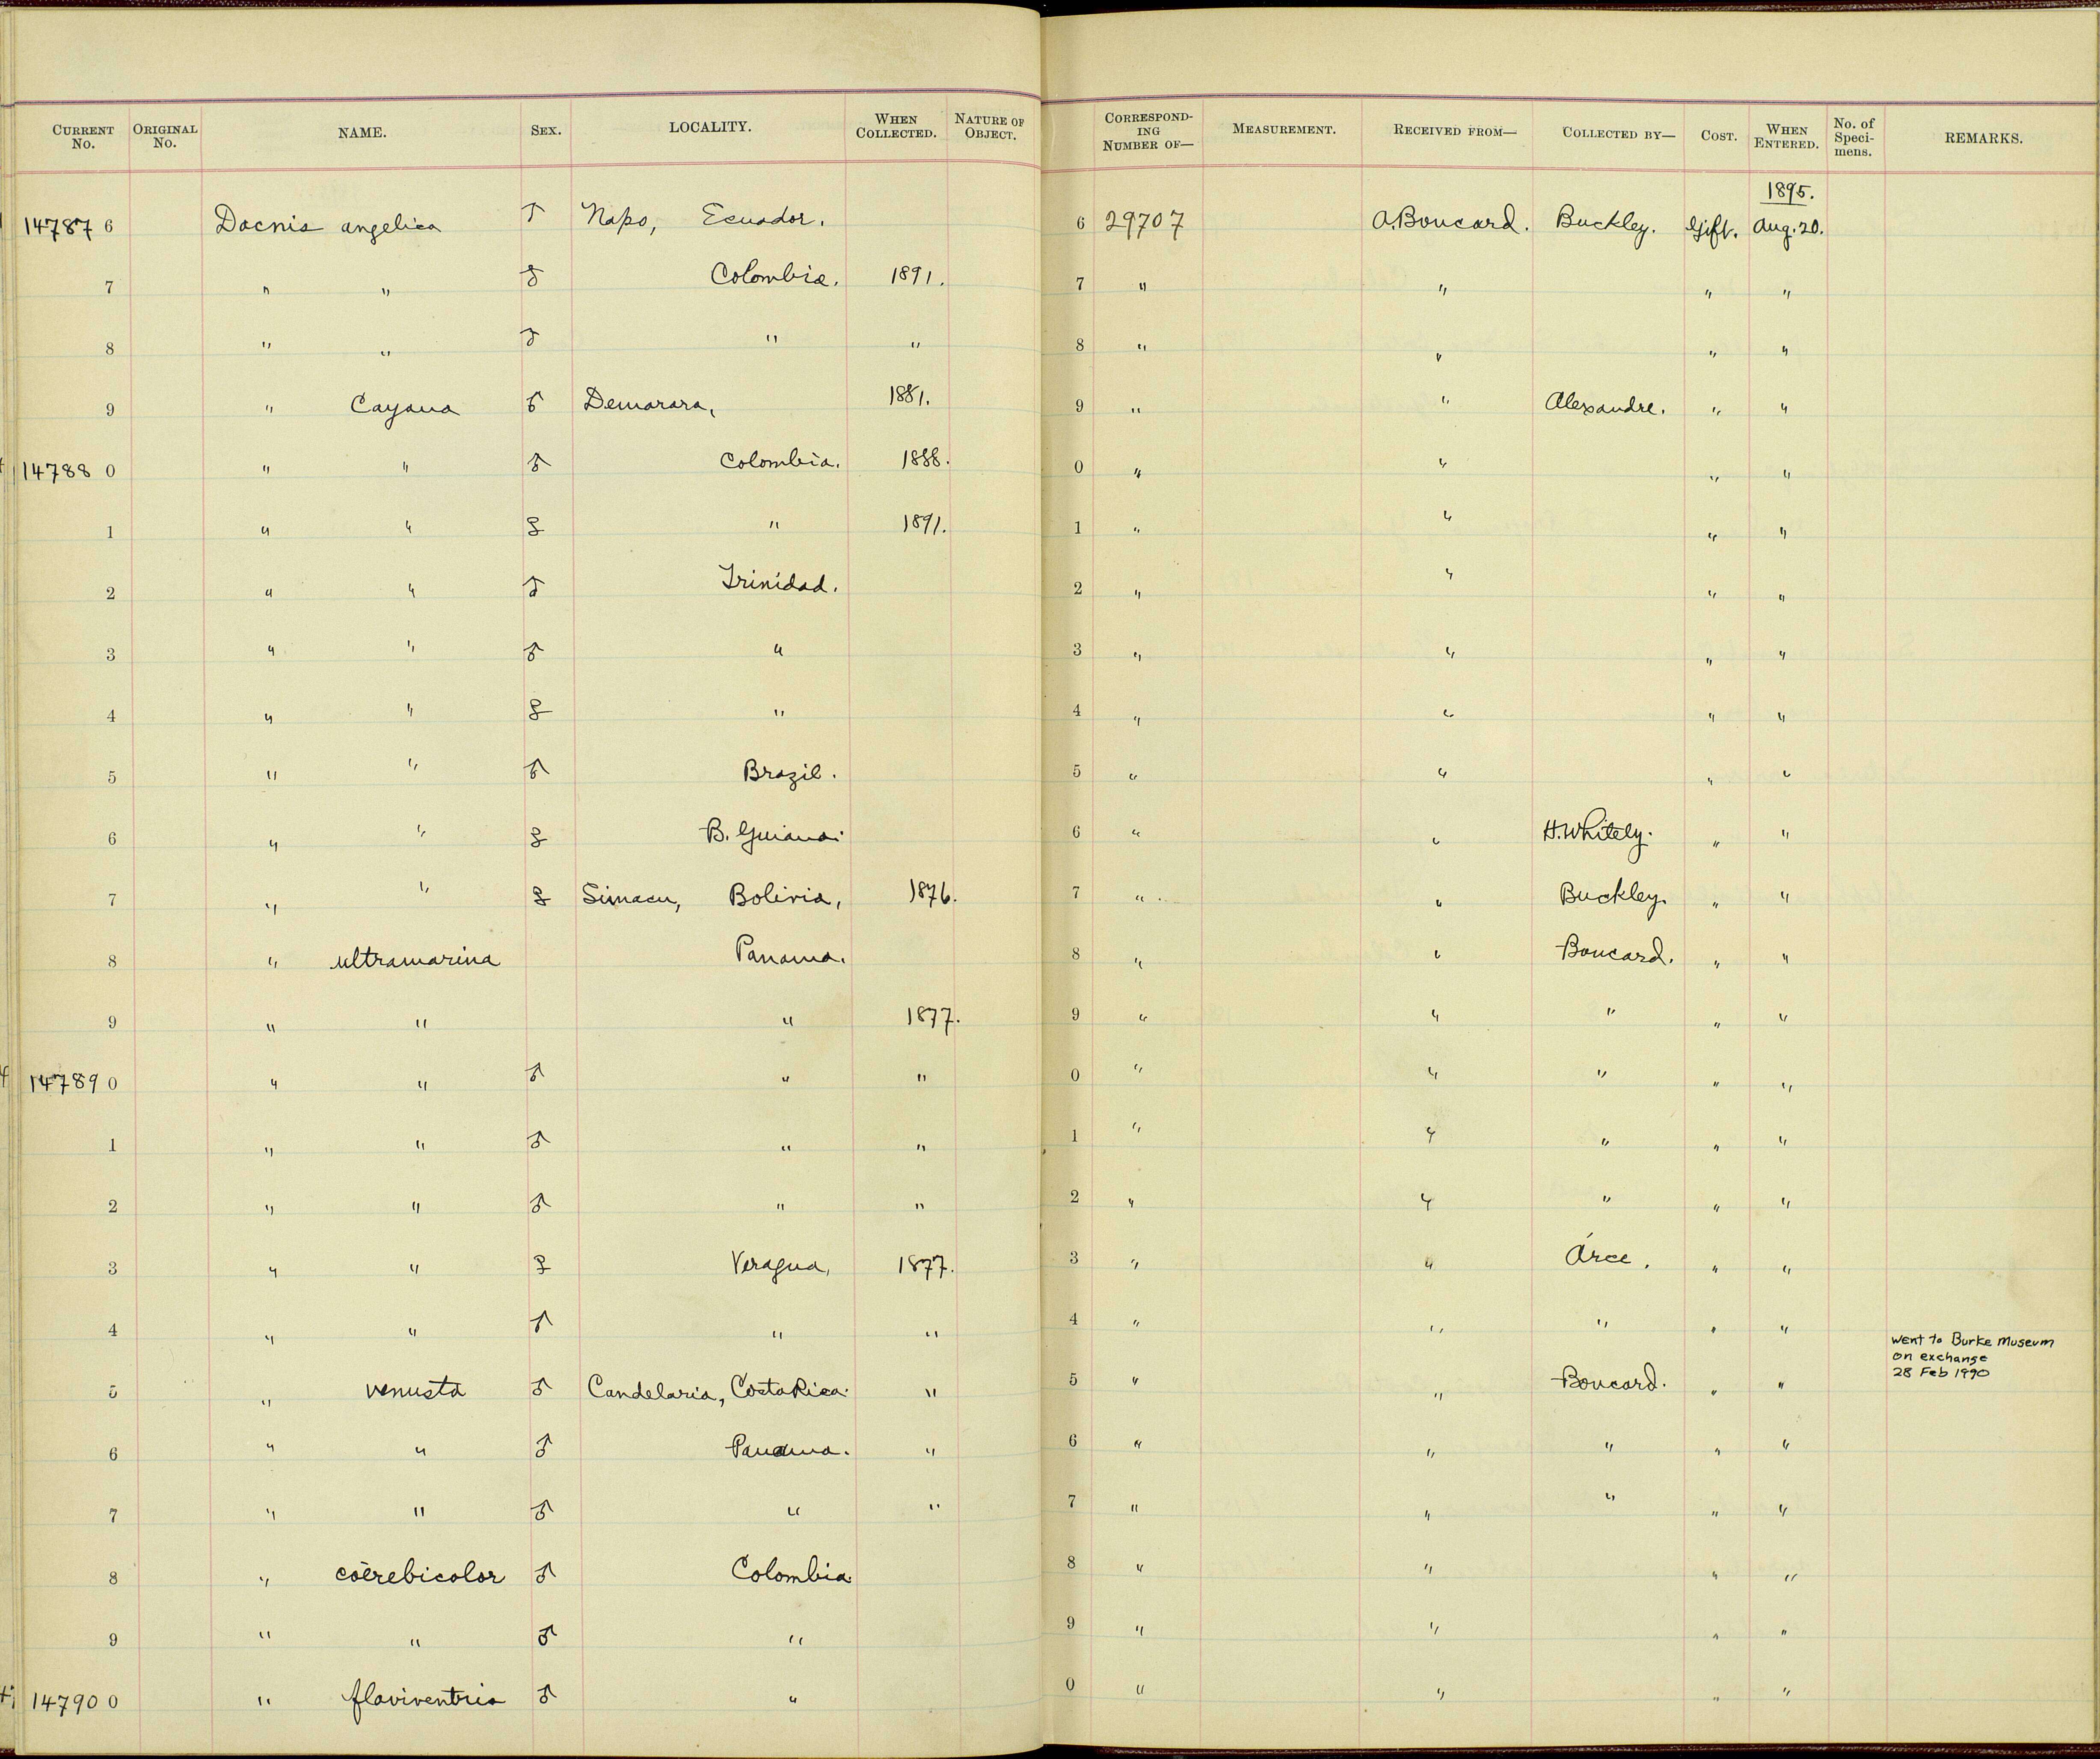 CURRENT No. ORIGINAL No. NAME. SEX. LOCALITY. WHEN COLLECTED. NATURE OF OBJECT. CORRESPONDING NUMBER OF— MEASUREMENT. RECEIVED FROM— COLLECTED BY— COST. WHEN ENTERED. No. of Specimens. REMARKS.
1895.
14787 6 Dacnis angelica ♂ Napo, Ecuador. 6 29707 A. Boucard. Buckley. Gift. Aug. 20.
7 " " ♂ Colombia. 1891. 7 " " " "
8 " " ♂ " " 8 " " " "
9 " Cayana ♂ Demarara, 1881. 9 " " Alexandre. " "
14788 0 " " ♂ Colombia. 1888. 0 " " " "
1 " " ♀ " 1891. 1 " " " "
2 " " ♂ Trinidad. 2 " " " "
3 " " ♂ " 3 " " " "
4 " " ♀ " 4 " " " "
5 " " ♂ Brazil. 5 " " " "
6 " " ♀ B. Guiana. 6 " " H. Whitely. " "
7 " " ♀ Simacu, Bolivia, 1876. 7 " " Buckley. " "
8 " ultramarina Panama. 8 " " Boucard. " "
9 " " " 1877. 9 " " " " "
14789 0 " " ♂ " " 0 " " " " "
1 " " ♂ " " 1 " " " " "
2 " " ♂ " " 2 " " " " "
3 " " ♀ Veragua, 1877. 3 " " Arce. " "
4 " " ♂ " " 4 " " " " "
5 " venusta ♂ Candelaria, Costa Rica. " 5 " " Boucard. " " went to Burke Museum
on exchange
28 Feb 1990
6 " " ♂ Panama. " 6 " " " " "
7 " " ♂ " " 7 " " " " "
8 " coërebicolor ♂ Colombia 8 " " " "
9 " " ♂ " 9 " " " "
14790 0 " flaviventris ♂ " 0 " " " "